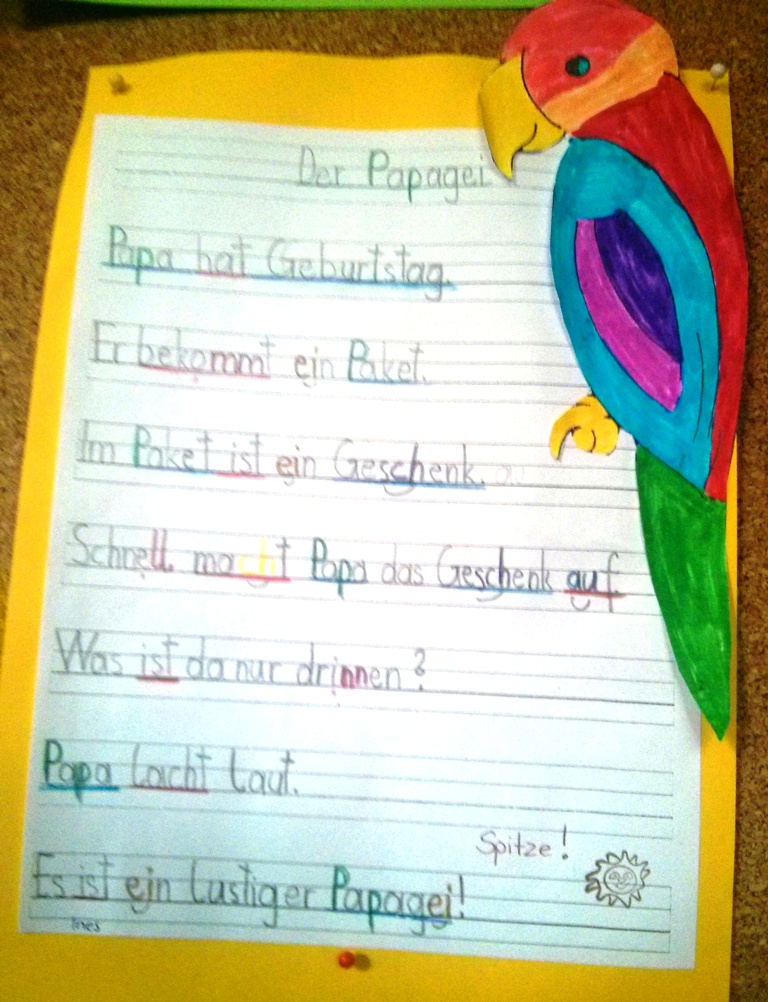 Der Papagei
Papa hat Geburtstag.
Er bekommt ein Paket.
Im Paket ist ein Geschenk.
Schnell macht Papa das Geschenk auf.
Was ist da nur drinnen?
Papa lacht laut.
Spitze!
Es ist ein lustiger Papagei!
Ines